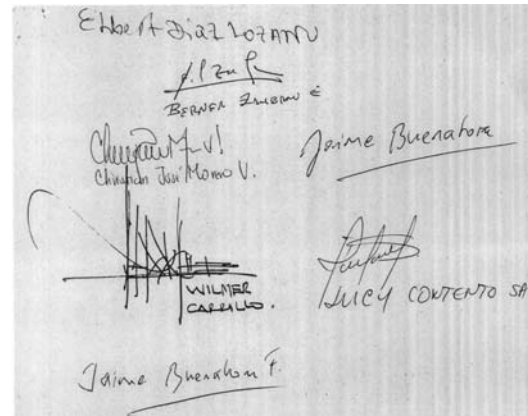 Elbert Díaz Lozano
BERNER ZAMBRANO E
Chinchilla José Moreno V.
Jaime Buenahora
WILMER
CARRILLO.
LUCY CONTENTO SA
Jaime Buenahora F.